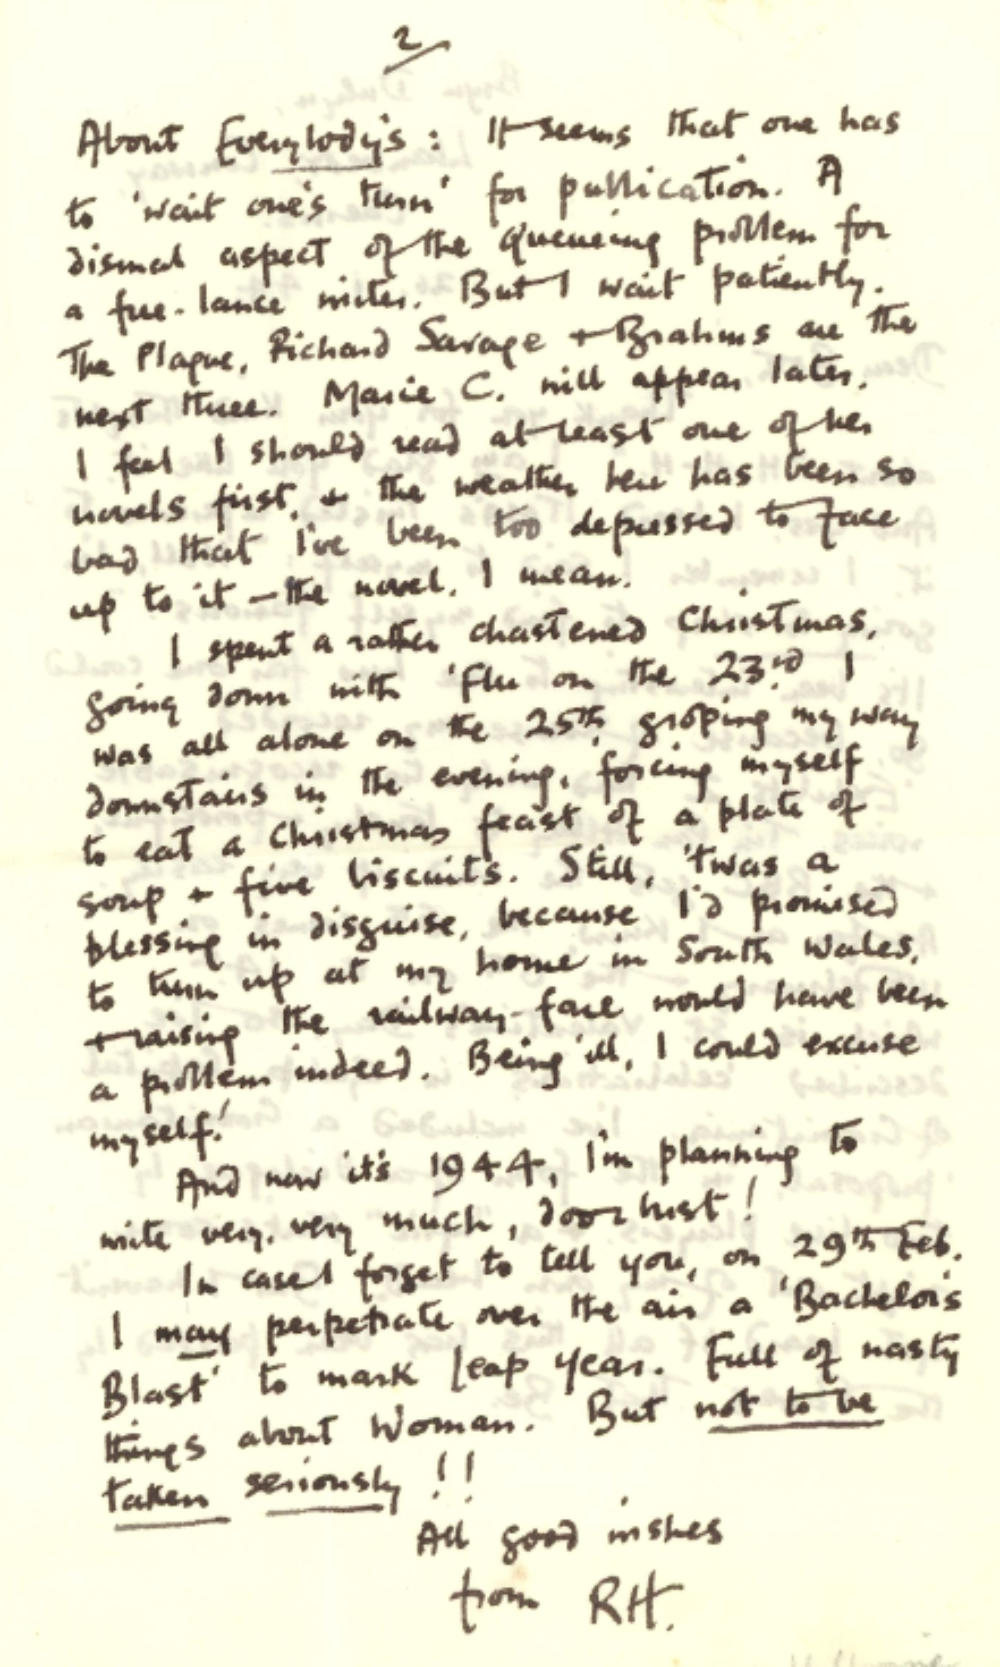 2
About Everybody's: It seems that one has
to 'wait one's turn' for publication. A
dismal aspect of the queueing problem for
a free-lance writer. But I wait patiently.
The Plague, Richard Savage + Brahms are the
next three. Marie C. will appear later.
I feel I should read at least one of her
novels first, + the weather here has been so
bad that I've been too depressed to face
up to it – the novel, I mean.
I spent a rather chastened Christmas,
going down with 'flu on the 23rd. I
was all alone on the 25th, groping my way
downstairs in the evening, forcing myself
to eat a Christmas feast of a plate of
soup + five biscuits. Still, 'twas a
blessing in disguise, because I'd promised
to turn up at my home in South Wales,
+ raising the railway-fare would have been
a problem indeed. Being ill, I could excuse
myself!
And now it's 1944, I'm planning to
write very, very much, door hist!
In case I forget to tell you, on 29th Feb.
I may perpetrate over the air a 'Bachelor's
Blast' to mark Leap Year. Full of nasty
things about Woman. But not to be
taken seriously!!
All good wishes
from RH.